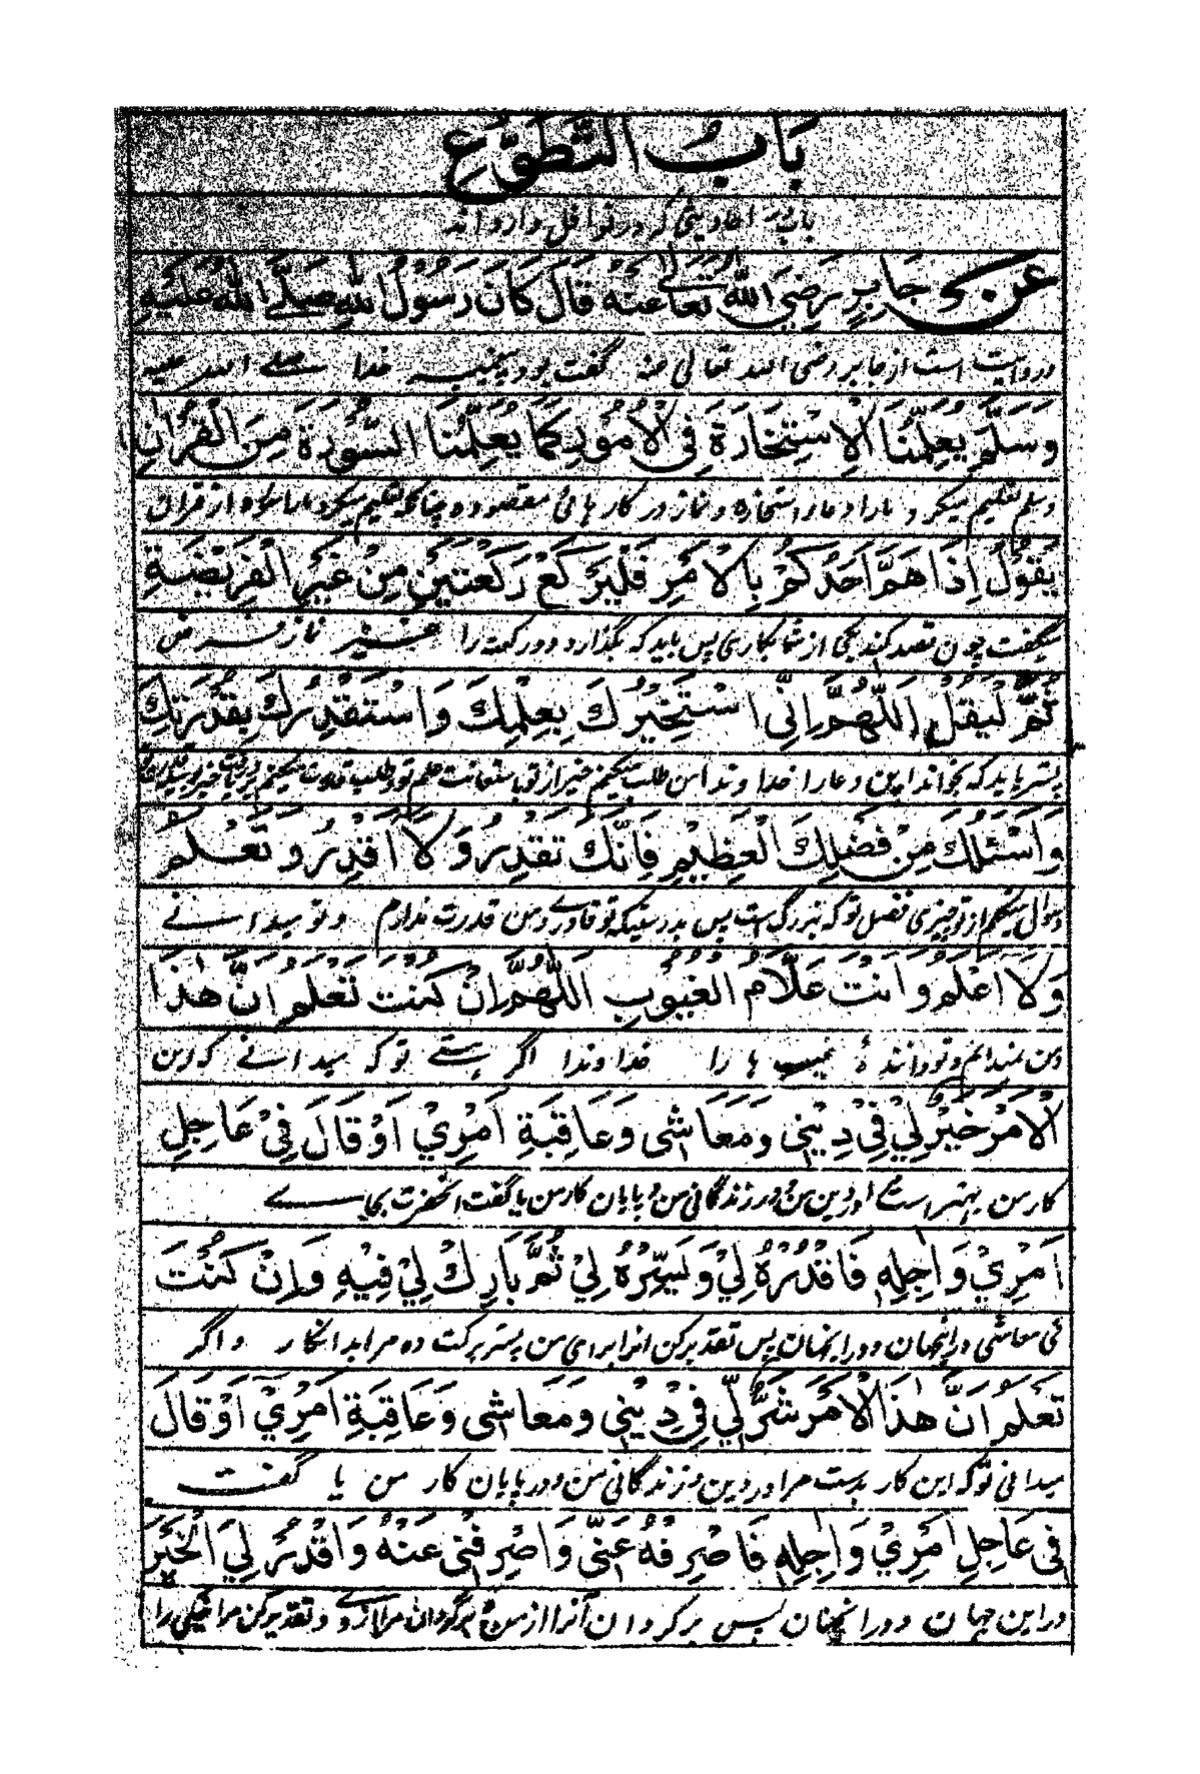 بَابُ التَّطَوُّعِ
باب احادیثی که در نوافل وارد اند
عَنْ جَابِرٍ رَضِيَ اللهُ تَعَالٰى عَنْهُ قَالَ كَانَ رَسُوْلُ اللهِ صَلَّى اللهُ عَلَيْهِ
روایت است از جابر رضی الله تعالی عنه گفت بود پیغمبر خدا صلے الله علیه
وَسَلَّمَ يُعَلِّمُنَا الْاِسْتِخَارَةَ فِي الْاُمُوْرِ كَمَا يُعَلِّمُنَا السُّوْرَةَ مِنَ الْقُرْاٰنِ
وسلم تعلیم میکرد مارا دعا استخاره و نماز در کار هائ مقصوده چنانکه تعلیم میکرد مارا سوره از قرآن
يَقُوْلُ اِذَا هَمَّ اَحَدُكُمْ بِالْاَمْرِ فَلْيَرْكَعْ رَكْعَتَيْنِ مِنْ غَيْرِ الْفَرِيْضَةِ
میگفت چون قصد کند یکی از شما بکاری پس باید که بگذارد دو رکعت را غیر نماز فرض
ثُمَّ لْيَقُلْ اَللّٰهُمَّ اِنِّي اَسْتَخِيْرُكَ بِعِلْمِكَ وَاَسْتَقْدِرُكَ بِقُدْرَتِكَ
پستر باید که بخواند این دعا را خدا وندا من طلب میکنم خیر از تو باستعانت علم تو و طلب قدرت میکنم
وَاَسْئَلُكَ مِنْ فَضْلِكَ الْعَظِيْمِ فَاِنَّكَ تَقْدِرُ وَلَا اَقْدِرُ وَتَعْلَمُ
وسوال میکنم از تو چیزی فضل تو که بزرگ است پس بدرستیکه تو قادرے و من قدرت ندارم و تو میدانے
وَلَا اَعْلَمُ وَاَنْتَ عَلَّامُ الْغُيُوْبِ اَللّٰهُمَّ اِنْ كُنْتَ تَعْلَمُ اَنَّ هٰذَا
ومن نمیدانم و تو دانندۀ غیب ها را خدا وندا اگر هستے تو که میدانے که این
الْاَمْرَ خَيْرٌ لِّيْ فِيْ دِيْنِيْ وَمَعَاشِيْ وَعَاقِبَةِ اَمْرِيْ اَوْ قَالَ فِيْ عَاجِلِ
کار من بهتر است در دین من و در زندگانی من و پایان کار من یا گفت آنحضرت بجاے
اَمْرِيْ وَاٰجِلِهٖ فَاقْدُرْهُ لِيْ وَيَسِّرْهُ لِيْ ثُمَّ بَارِكْ لِيْ فِيْهِ وَاِنْ كُنْتَ
فی معاشی در اینجهان و در آنجهان پس تقدیر کن آنرا برای من پستر برکت ده مرا بدانکار و اگر
تَعْلَمُ اَنَّ هٰذَا الْاَمْرَ شَرٌّ لِّيْ فِيْ دِيْنِيْ وَمَعَاشِيْ وَعَاقِبَةِ اَمْرِيْ اَوْ قَالَ
میدانی تو که این کار بدست مرا در دین و زندگانی من و در پایان کار من یا گفت
فِي عَاجِلِ اَمْرِيْ وَاٰجِلِهٖ فَاصْرِفْهُ عَنِّيْ وَاصْرِفْنِيْ عَنْهُ وَاقْدُرْ لِيَ الْخَيْرَ
در این جهان و در آنجهان پس برگردان آنرا از من و برگردان مرا ازوے و تقدیر کن مرا نیکی را